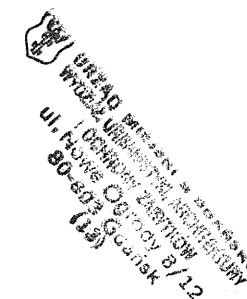 URZĄD MIEJSKI w GDAŃSKU
WYDZIAŁ URBANISTYKI, ARCHITEKTURY
I OCHRONY ZABYTKÓW
ul. Nowe Ogrody 8/12
80-803 Gdańsk
(19)